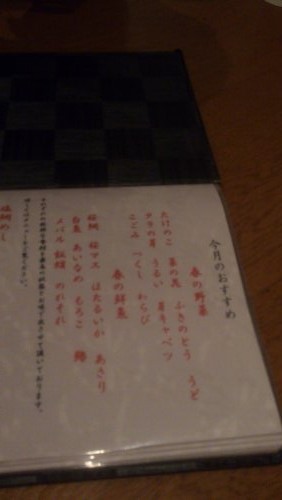 今月のおすすめ
春の野菜
たけのこ 菜の花 ふきのとう うど
タラの芽 うるい 若キャベツ
こごみ つくし わらび
春の鮮魚
桜鯛 桜マス ほたるいか あさり
白魚 あいなめ もろこ
メバル 飯蛸 のれそれ
桜鯛めし